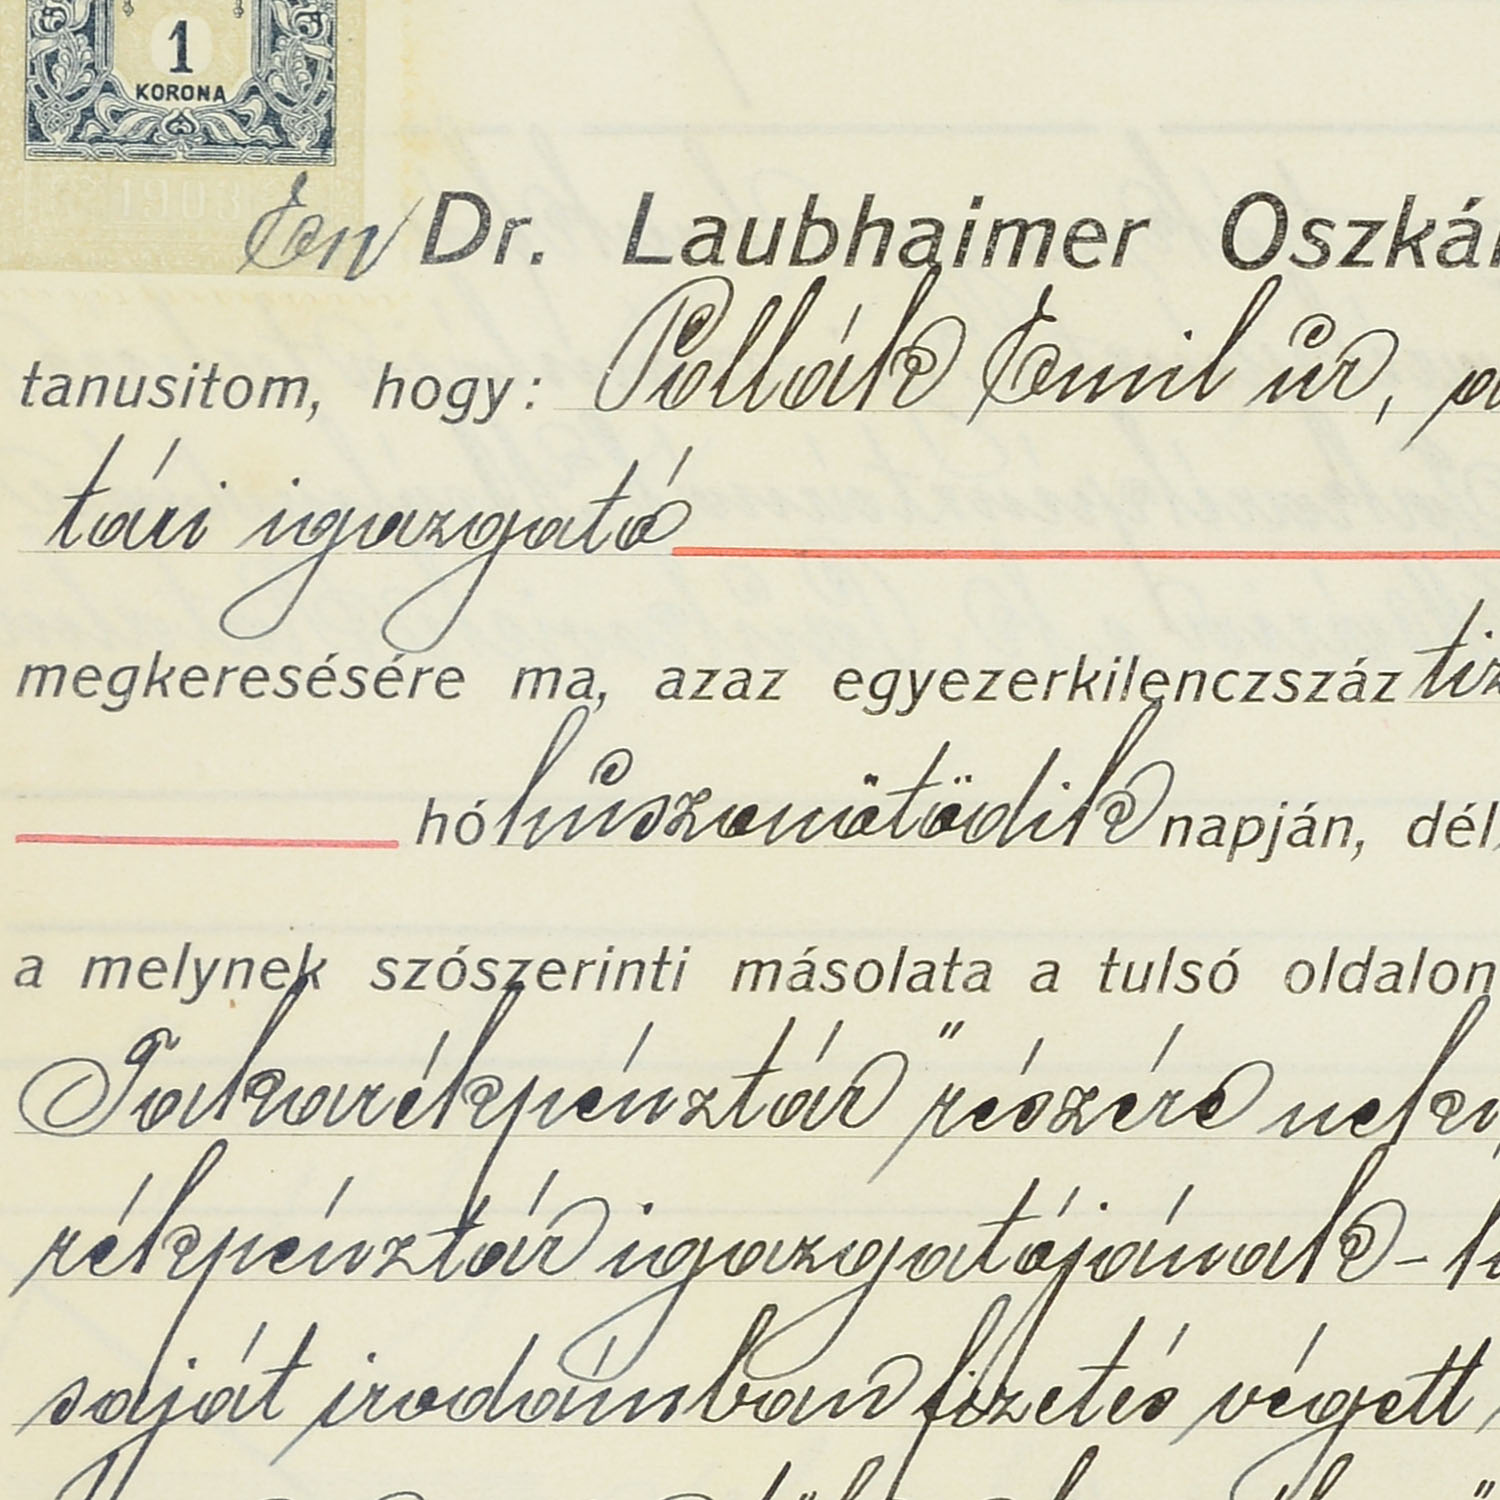 1
KORONA
1903
Én Dr. Laubhaimer Oszkár
tanusitom, hogy: Pollák Emil úr,
tári igazgató
megkeresésére ma, azaz egyezerkilenczszáz tiz
hó húszonötödik napján, dél
a melynek szószerinti másolata a tulsó oldalon
Takarékpénztár" részére nek
rékpénztár igazgatójának -
saját irodámban fizetés végett